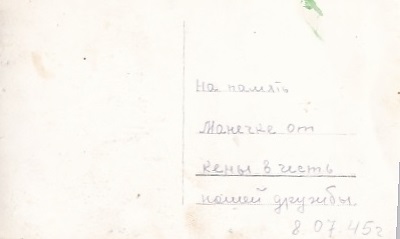 На память
Манечке от
Жены в честь
нашей дружбы.
8.07.45г